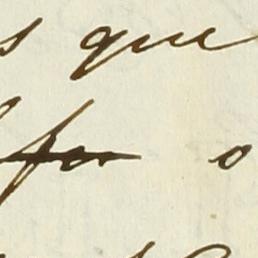 s que
for o